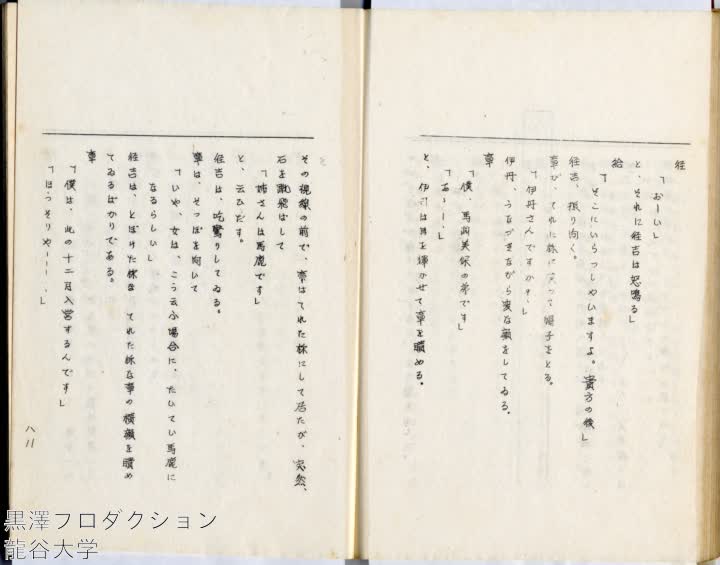 経
「おーい」
と、それに経吉は怒鳴る」
給
「そこにいらっしやいますよ。貴方の後」
経吉、振り向く。
章が、てれた様に笑って帽子をとる。
「伊丹さんですか、」
伊丹、うなづきながら変な顔をしてゐる。
章
「僕、馬渕美保の弟です」
「あゝー、」
と、伊丹は目を輝かせて章を瞶める。
その視線の前で、章はてれた様にして居たが、突然、
石を蹴飛ばして
「姉さんは馬鹿です」
と、云ひだす。
経吉は、吃驚りしてゐる。
章は、そっぽを向いて
「いや、女は、こう云ふ場合に、たいてい馬鹿に
なるらしい」
経吉は、とぼけた様な てれた様な章の横顔を瞶め
てゐるばかりである。
章
「僕は、此の十二月入営するんです」
「ほっそりやーー、」
八 11
黒澤フロダクション
龍谷大学